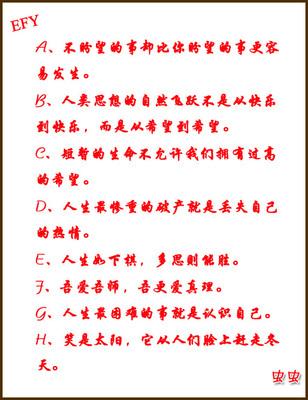 EFY
A、不盼望的事却比你盼望的事更容
易发生。
B、人类思想的自然飞跃不是从快乐
到快乐，而是从希望到希望。
C、短暂的生命不允许我们拥有过高
的希望。
D、人生最惨重的破产就是丢失自己
的热情。
E、人生如下棋，多思则能胜。
F、吾爱吾师，吾更爱真理。
G、人生最困难的事就是认识自己。
H、笑是太阳，它从人们脸上赶走冬
天。
虫虫